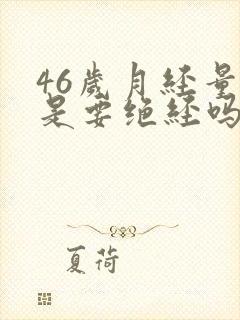 46歲月经量
是要绝经吗
夏荷